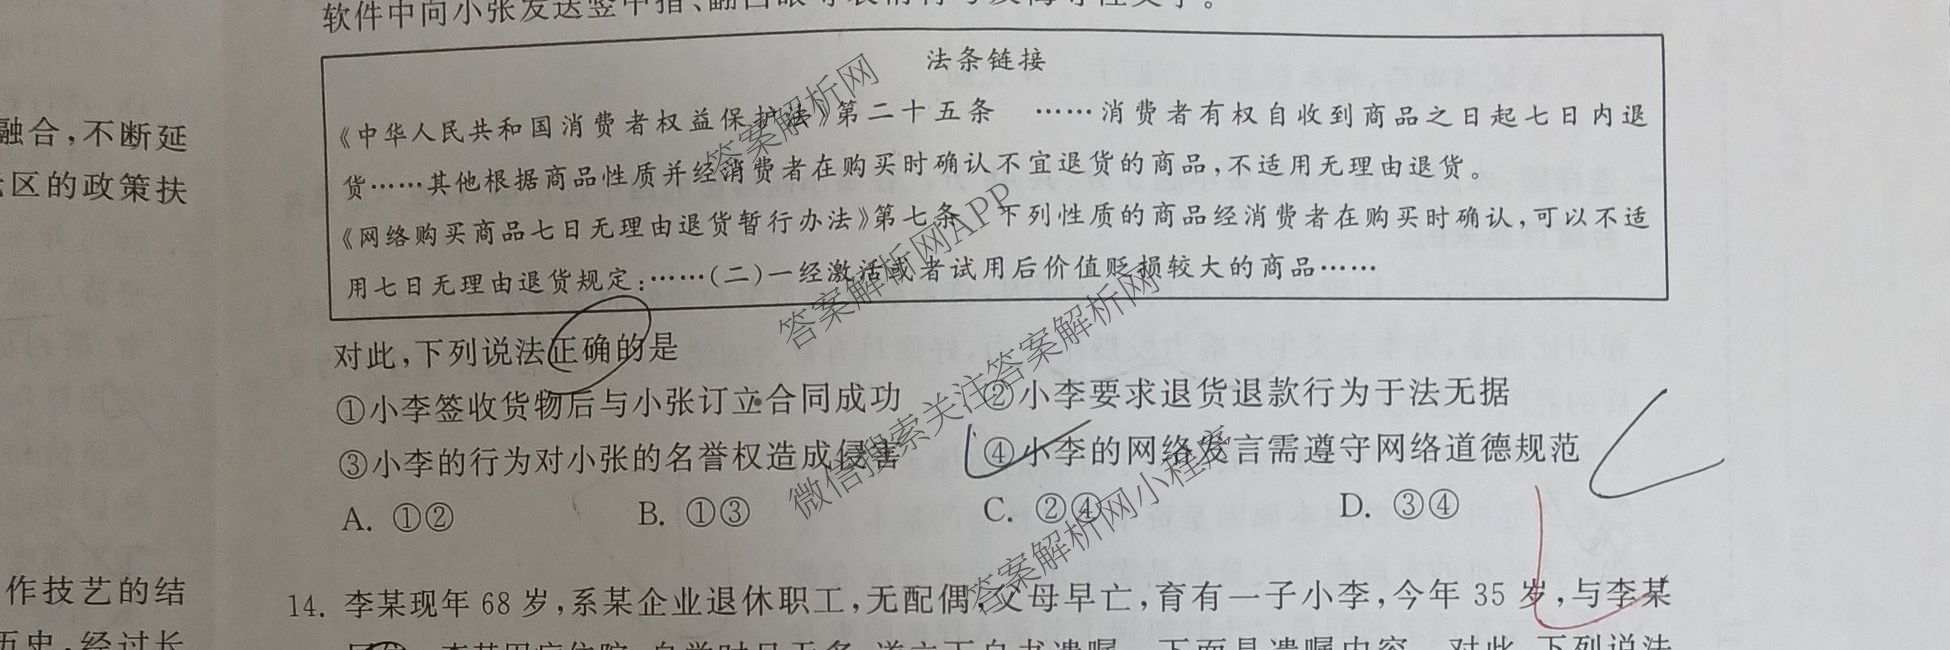 软件中向小张发送竖中指、翻白眼等表情符号及侮辱性文字。
法条链接
《中华人民共和国消费者权益保护法》第二十五条 ……消费者有权自收到商品之日起七日内退
货……其他根据商品性质并经消费者在购买时确认不宜退货的商品,不适用无理由退货。
《网络购买商品七日无理由退货暂行办法》第七条 下列性质的商品经消费者在购买时确认,可以不适
用七日无理由退货规定:……(二)一经激活或者试用后价值贬损较大的商品……
对此,下列说法正确的是
①小李签收货物后与小张订立合同成功 ②小李要求退货退款行为于法无据
③小李的行为对小张的名誉权造成侵害 ④小李的网络发言需遵守网络道德规范
A. ①② B. ①③ C. ②④ D. ③④
14. 李某现年 68 岁,系某企业退休职工,无配偶,父母早亡,育有一子小李,今年 35 岁,与李某
融合,不断延
区的政策扶
作技艺的结
历史,经过长
答案解析网
答案解析网APP
微信搜索关注答案解析网
答案解析网小程序